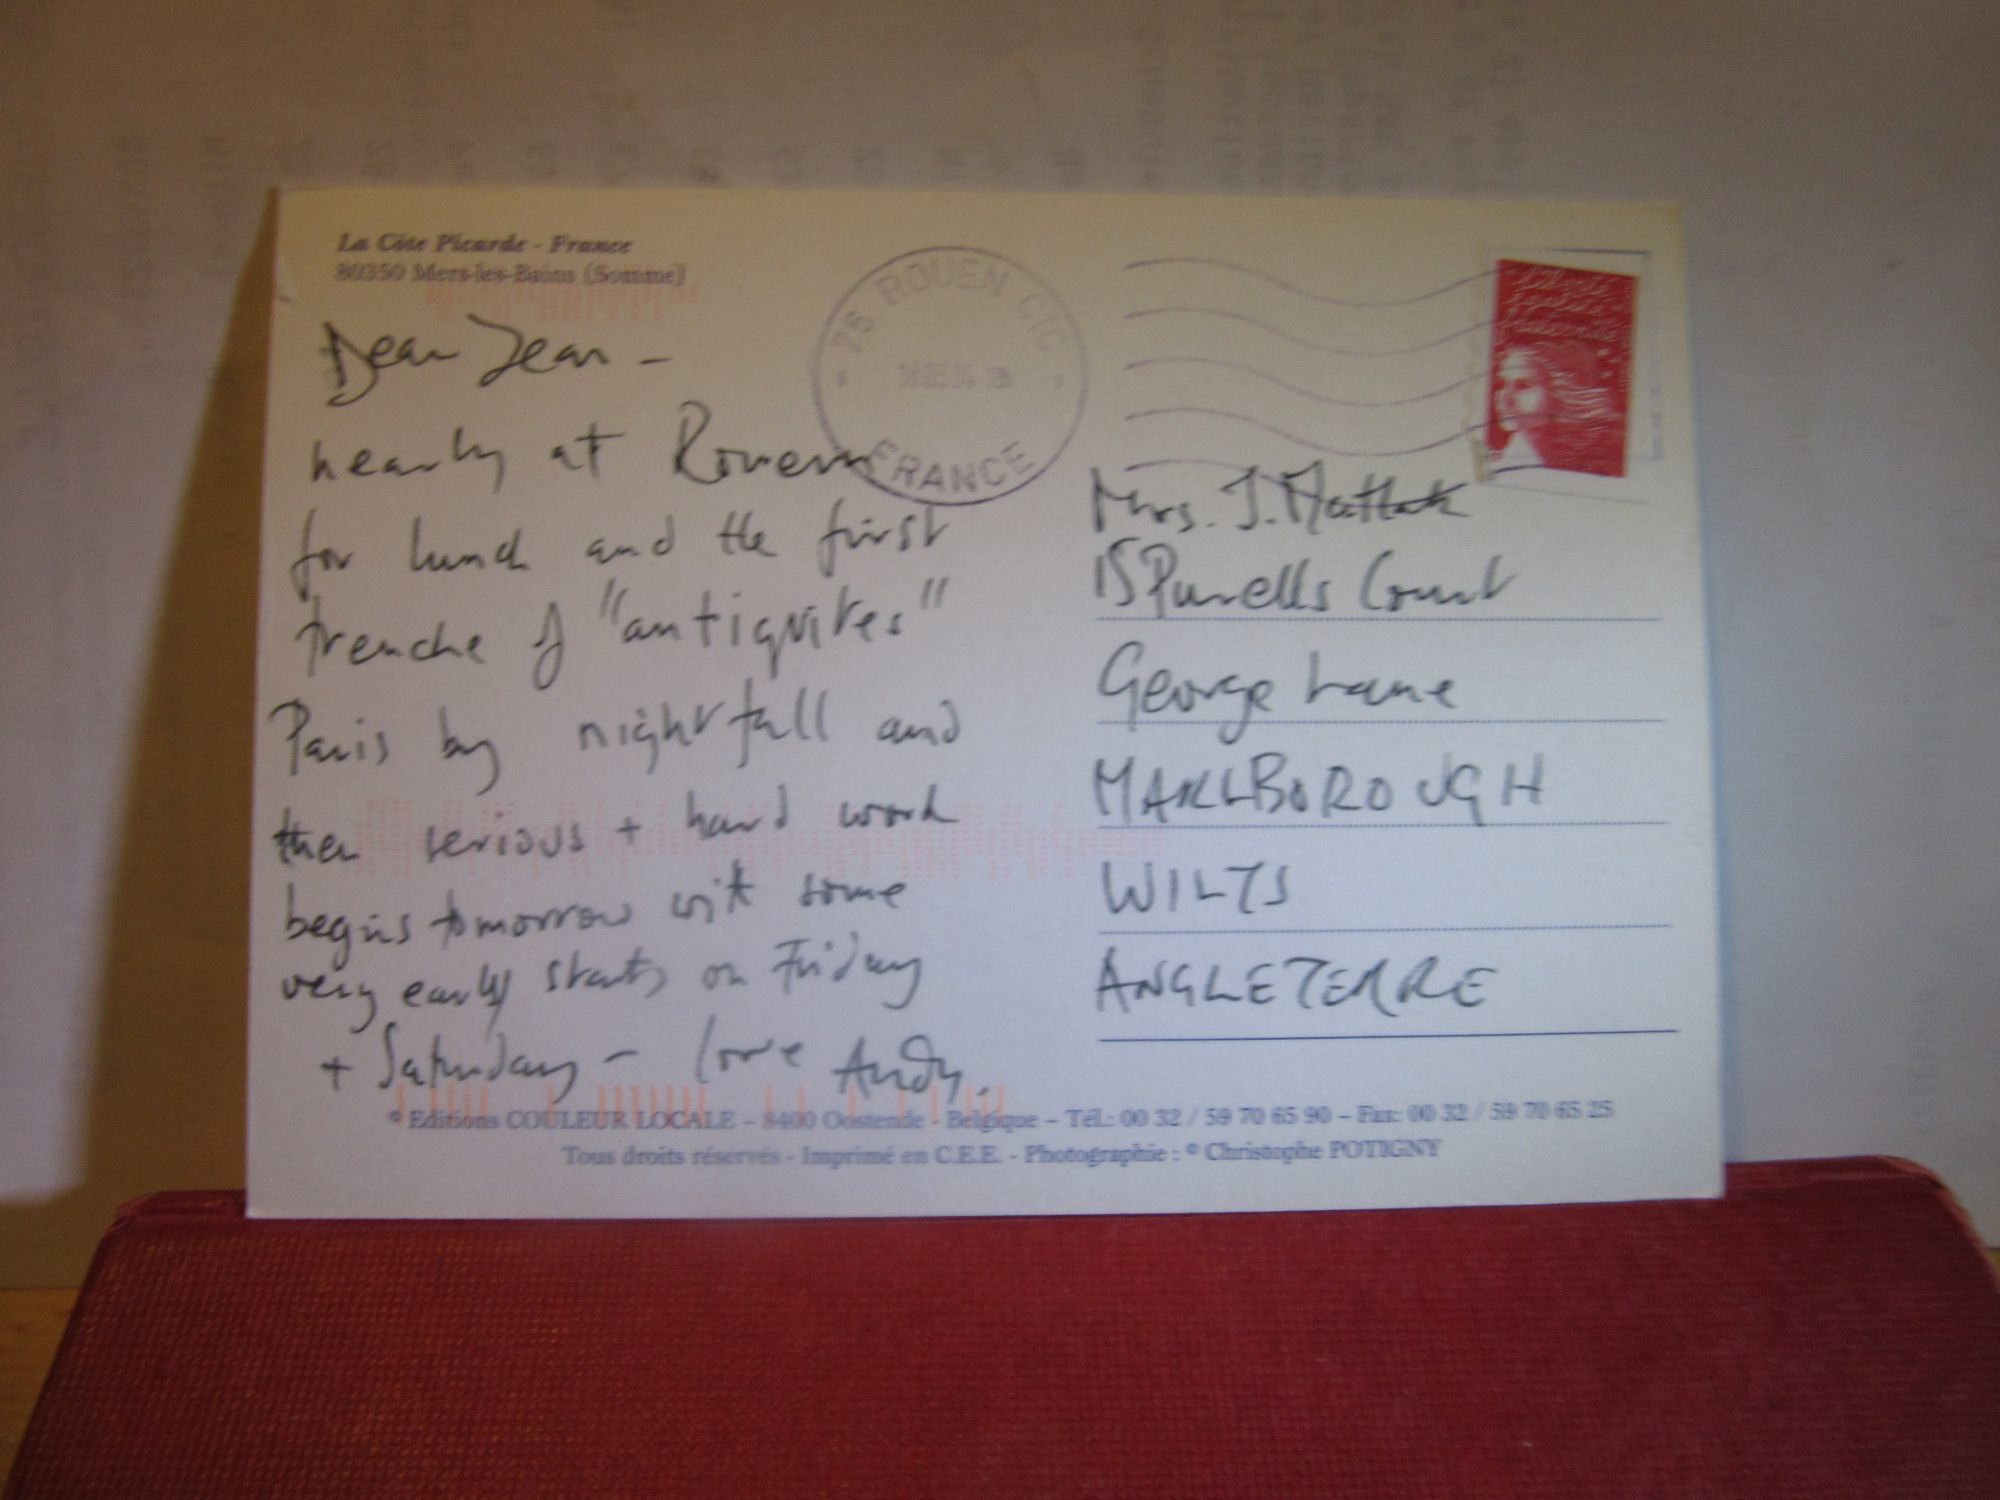 La Côte Picarde - France
80350 Mers-les-Bains (Somme)
76 ROUEN CIC
FRANCE
Liberté
Égalité
Fraternité
Dear Jean -
nearly at Rouen
for lunch and the first
trenche of "antiquites"
Paris by nightfall and
then serious + hard work
begins tomorrow with some
very early starts on Friday
+ Saturday - love Andy.
Mrs. J.
15 Purells Court
George Lane
MARLBOROUGH
WILTS
ANGLETERRE
© Editions COULEUR LOCALE – 8400 Oostende - Belgique – Tél.: 00 32 / 59 70 65 90 – Fax: 00 32 / 59 70 65 25
Tous droits réservés - Imprimé en C.E.E. - Photographie : © Christophe POTIGNY